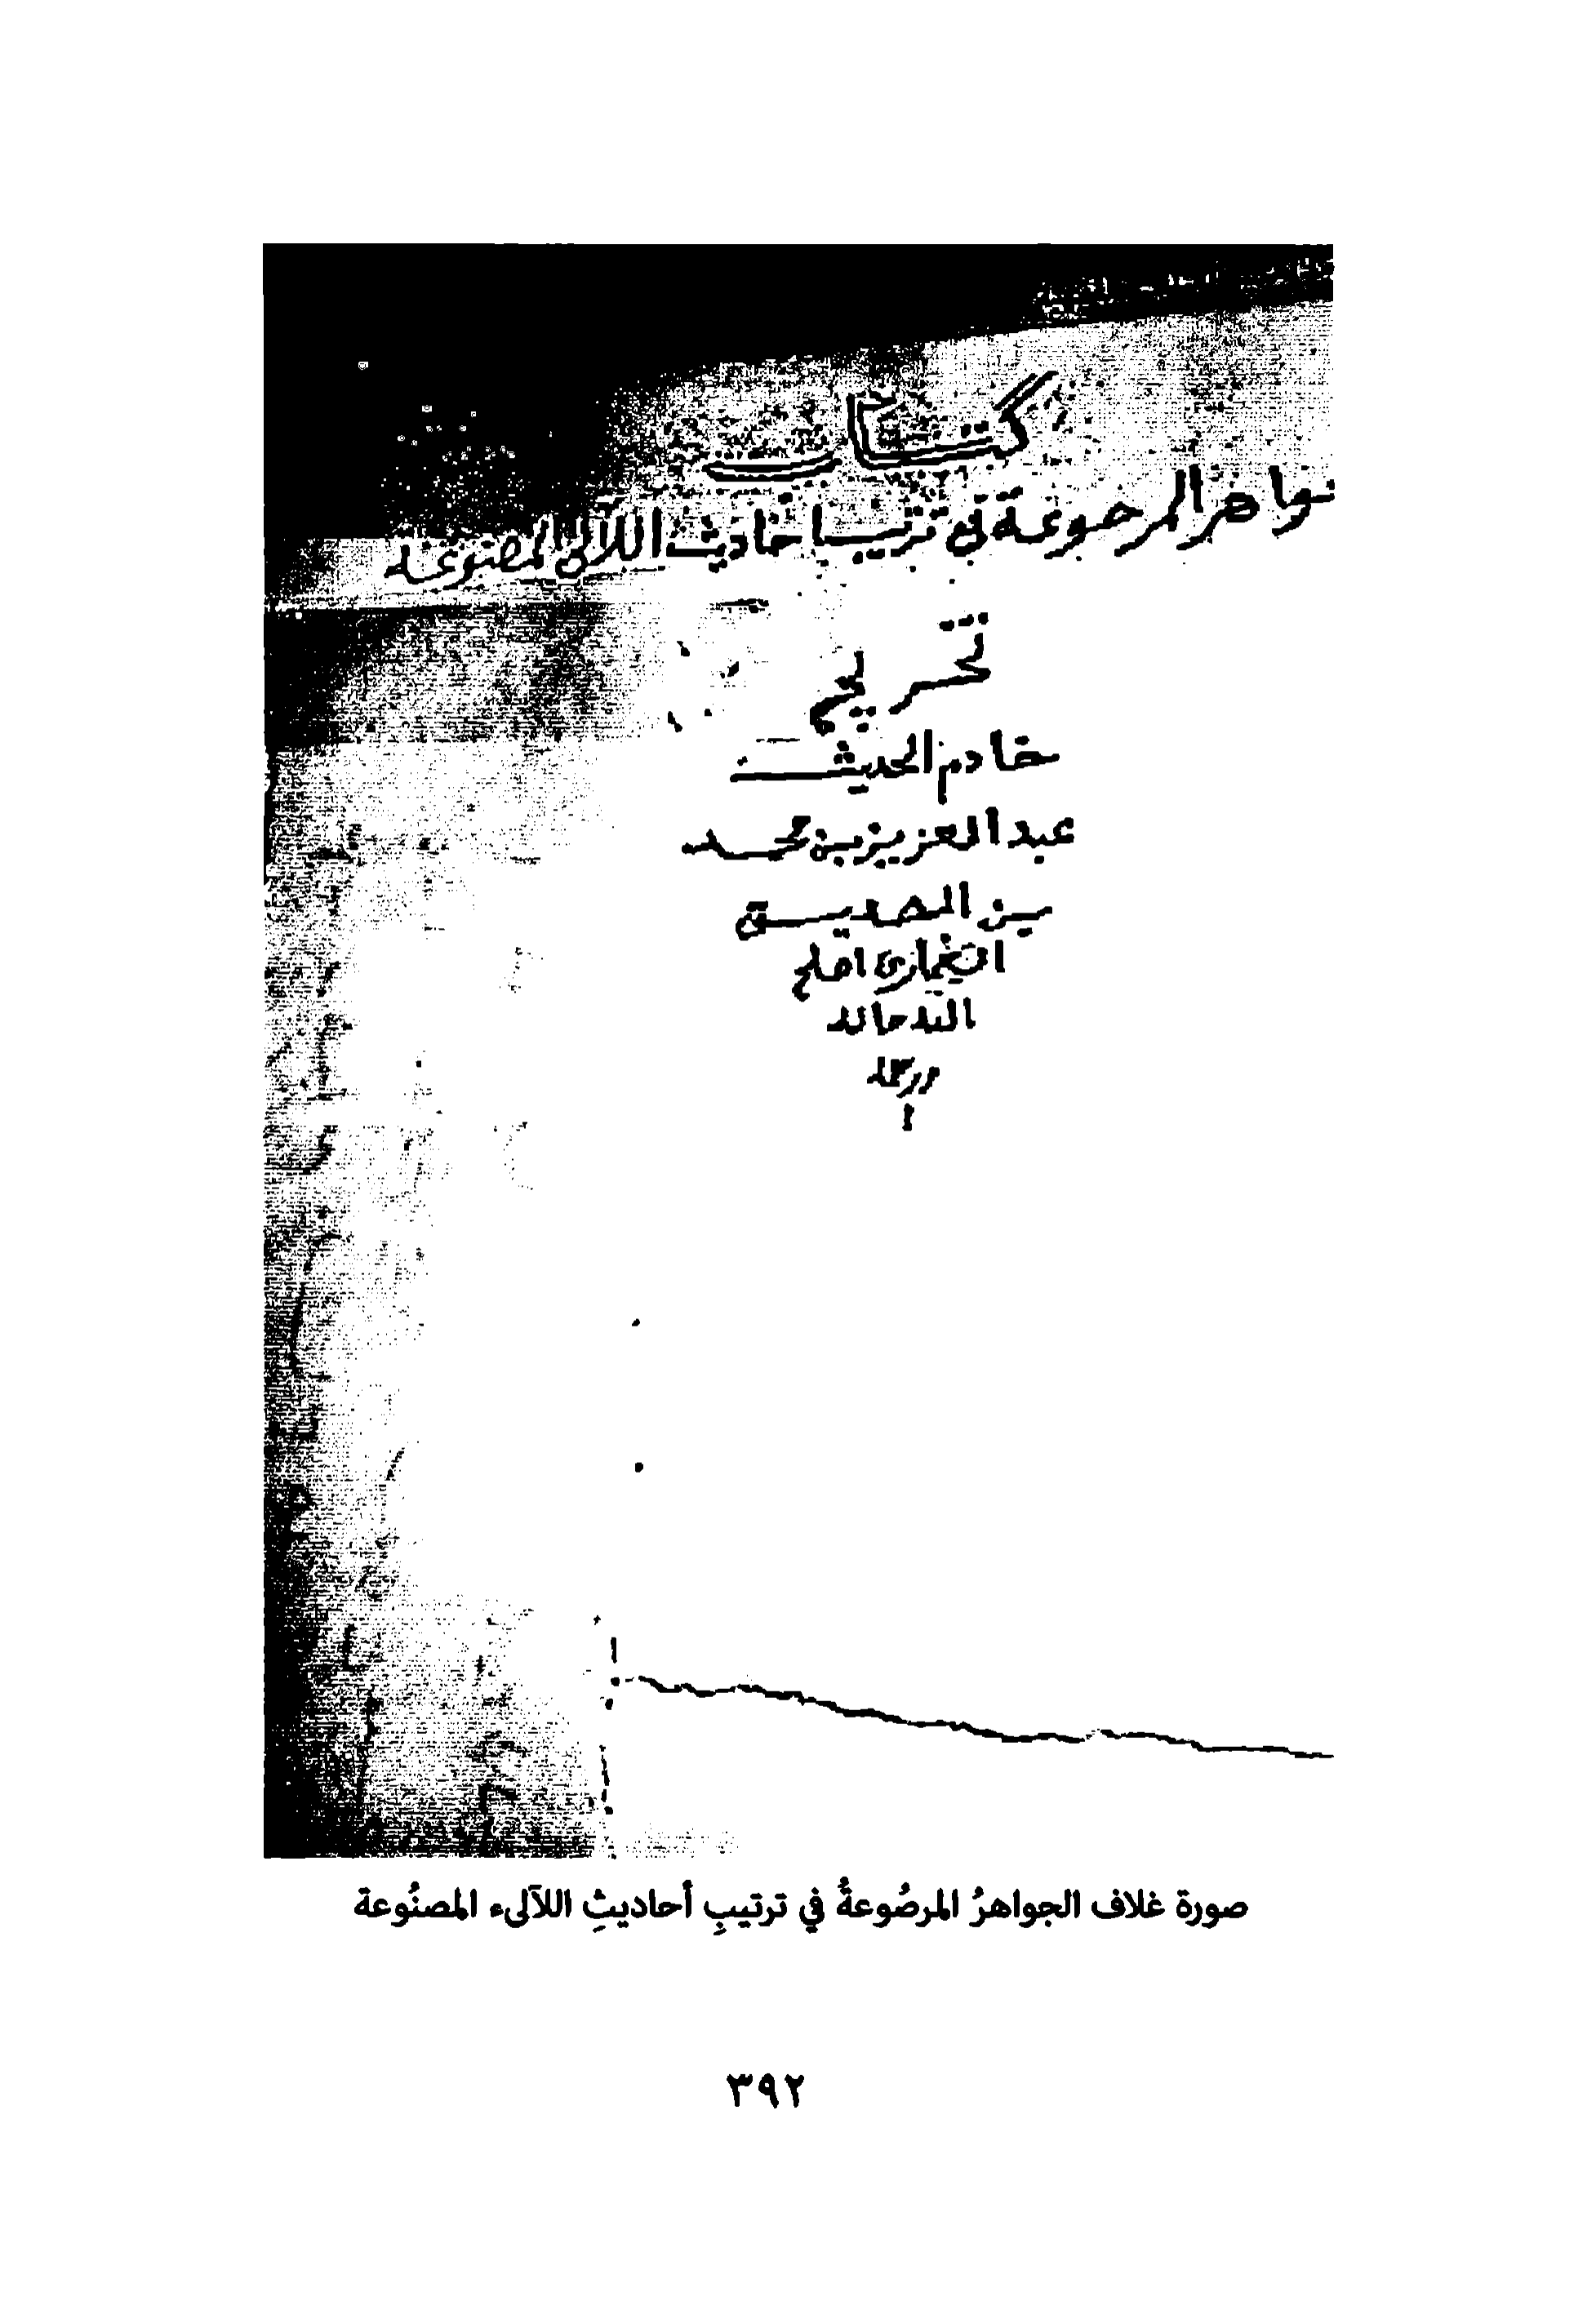 كتاب
جواهر المرصوعة في ترتيب احاديث اللآلي المصنوعة
تخريج
خادم الحديث
عبد العزيز بن محمد
بن الصديق
الغماري اصلح
الله حاله
صورة غلاف الجواهرُ المرصُوعةُ في ترتيبِ أحاديثِ اللآلىء المصنُوعة
٣٩٢